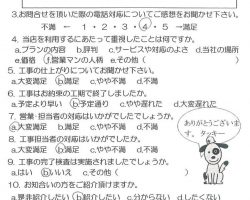 3.お問合せを頂いた際の電話対応についてご感想をお聞かせ下さい。
不満 ← 1・2・3・4・5 →満足
4. 当店を利用するにあたって重視したことは何ですか。
a.プランの内容 b.評判 c.サービスや対応のよさ d.当社の場所
e.価格 f.営業マンの人柄 e.その他(
5. 工事の仕上がりについてお聞かせ下さい。
a.大変満足 b.満足 c.やや不満 d.不満
6. 工事はお約束の工期で終了しましたか。
a.予定より早い b.予定通り c.やや遅れた d.大変遅れた
7. 営業・担当者の対応はいかがでしたか。
a.大変満足 b.満足 c.やや不満 d.不満
8. 工事担当者の対応はいかがでしたか。
a.大変満足 b.満足 c.やや不満 d.不満
9. 工事の完了検査は実施されましたでしょうか。
a.はい b.いいえ c.その他(
10. お知合いの方をご紹介頂けますか。
a.是非紹介したい b.紹介したい c.分からない d.したくない
ありがとうございま
す。タッキー